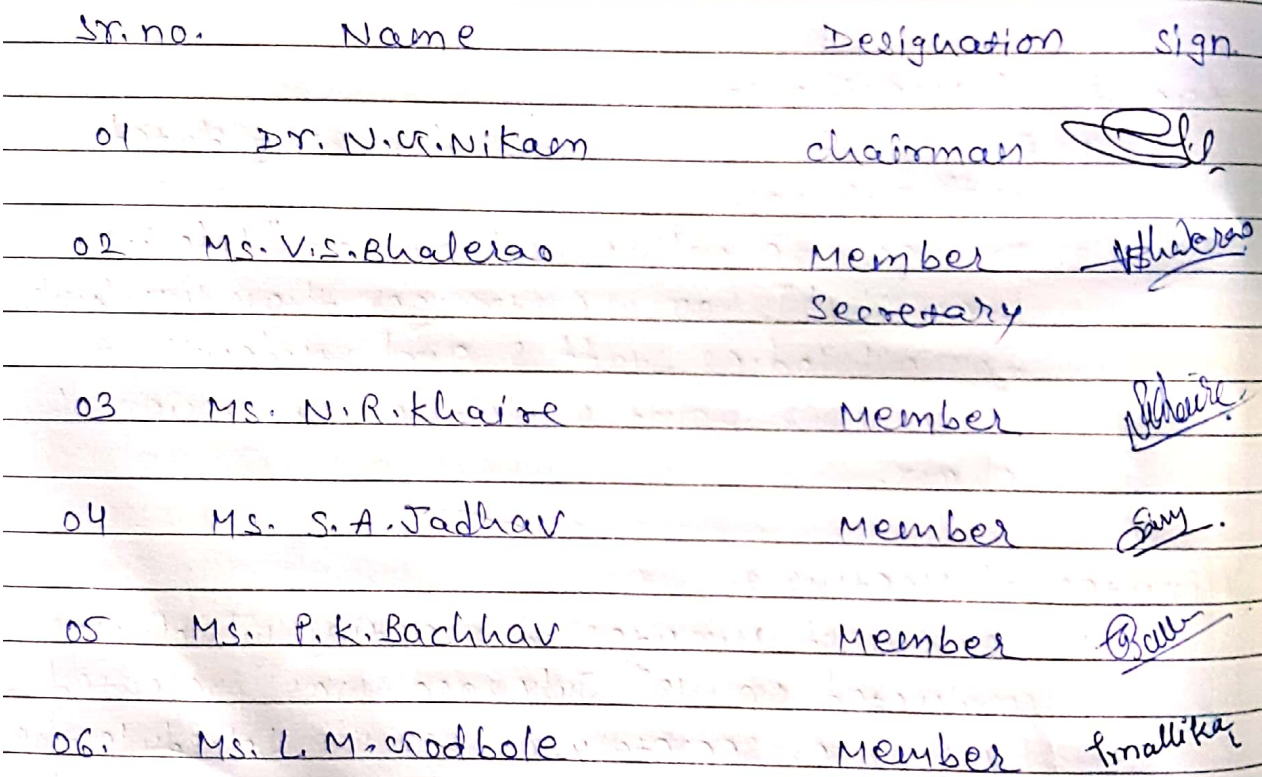 Sr. no. Name Designation sign.
01 Dr. N. G. Nikam chairman
02 Ms. V. S. Bhalerao Member
Secretary
03 Ms. N. R. Khaire Member
04 Ms. S. A. Jadhav Member
05 Ms. P. K. Bachhav Member
06. Ms. L. M. Godbole Member